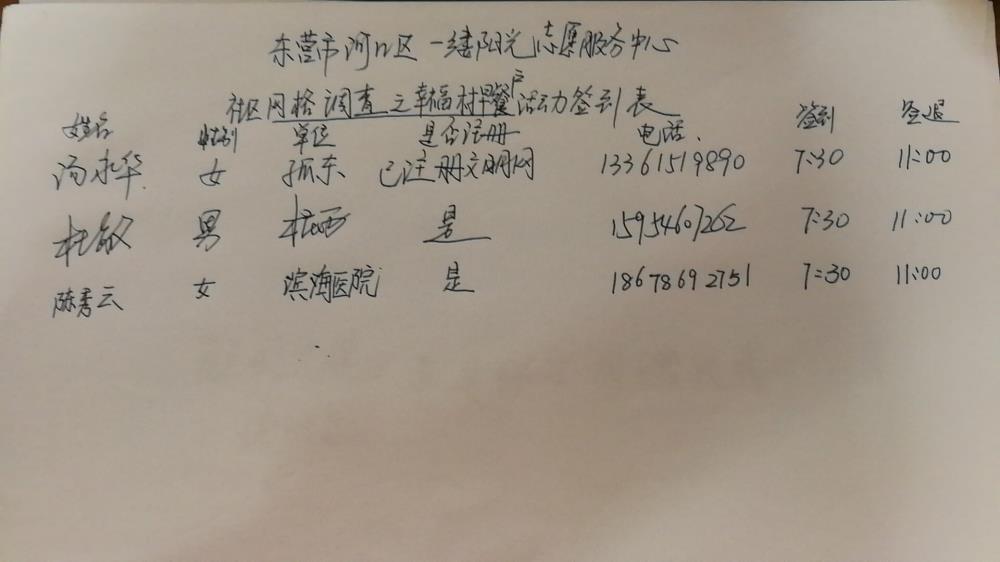 东营市河口区一缕阳光志愿服务中心
社区网格调查之幸福村早餐户活动签到表
姓名 性别 单位 是否注册 电话. 签到 签退
汤永华 女 孤东 已注册文明网 13361519890 7:30 11:00
杜敏 男 桩西 是 15954607262 7:30 11:00
陈秀云 女 滨海医院 是 18678692751 7:30 11:00